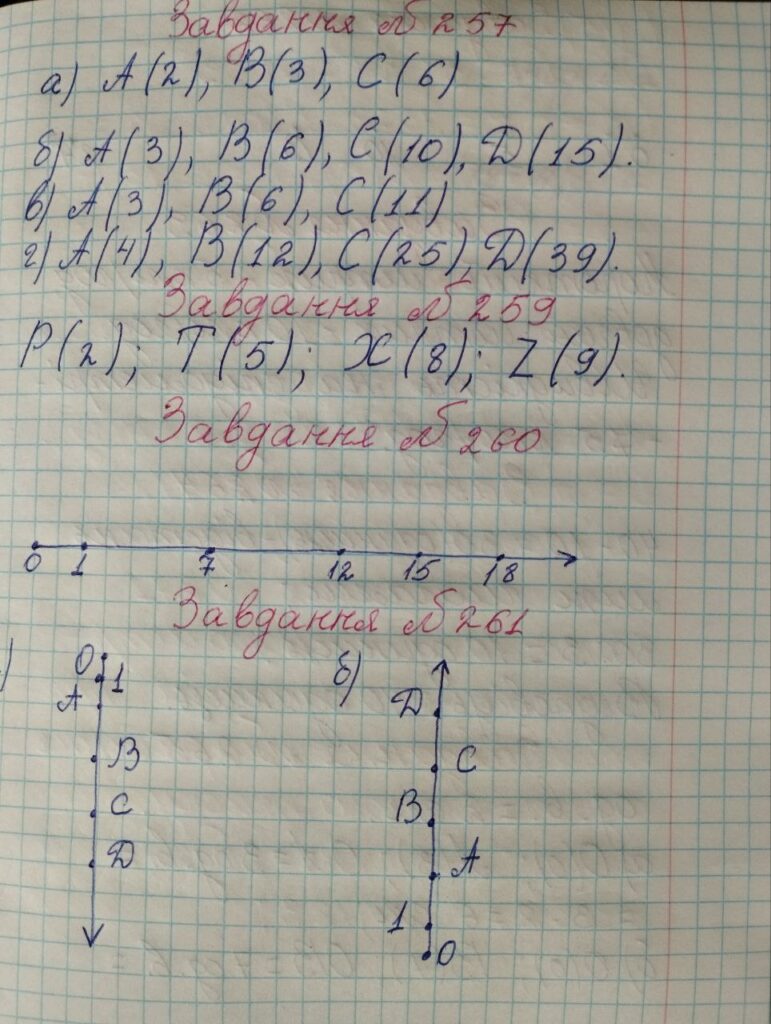 Завдання № 257
а) А(2), В(3), С(6)
б) А(3), В(6), С(10), Д(15).
в) А(3), В(6), С(11)
г) А(4), В(12), С(25), Д(39).
Завдання № 259
Р(2); Т(5); Х(8); Z(9).
Завдання № 260
0 1 7 12 15 18
Завдання № 261
) б)
0
1
А
В
С
Д
Д
С
В
А
1
0